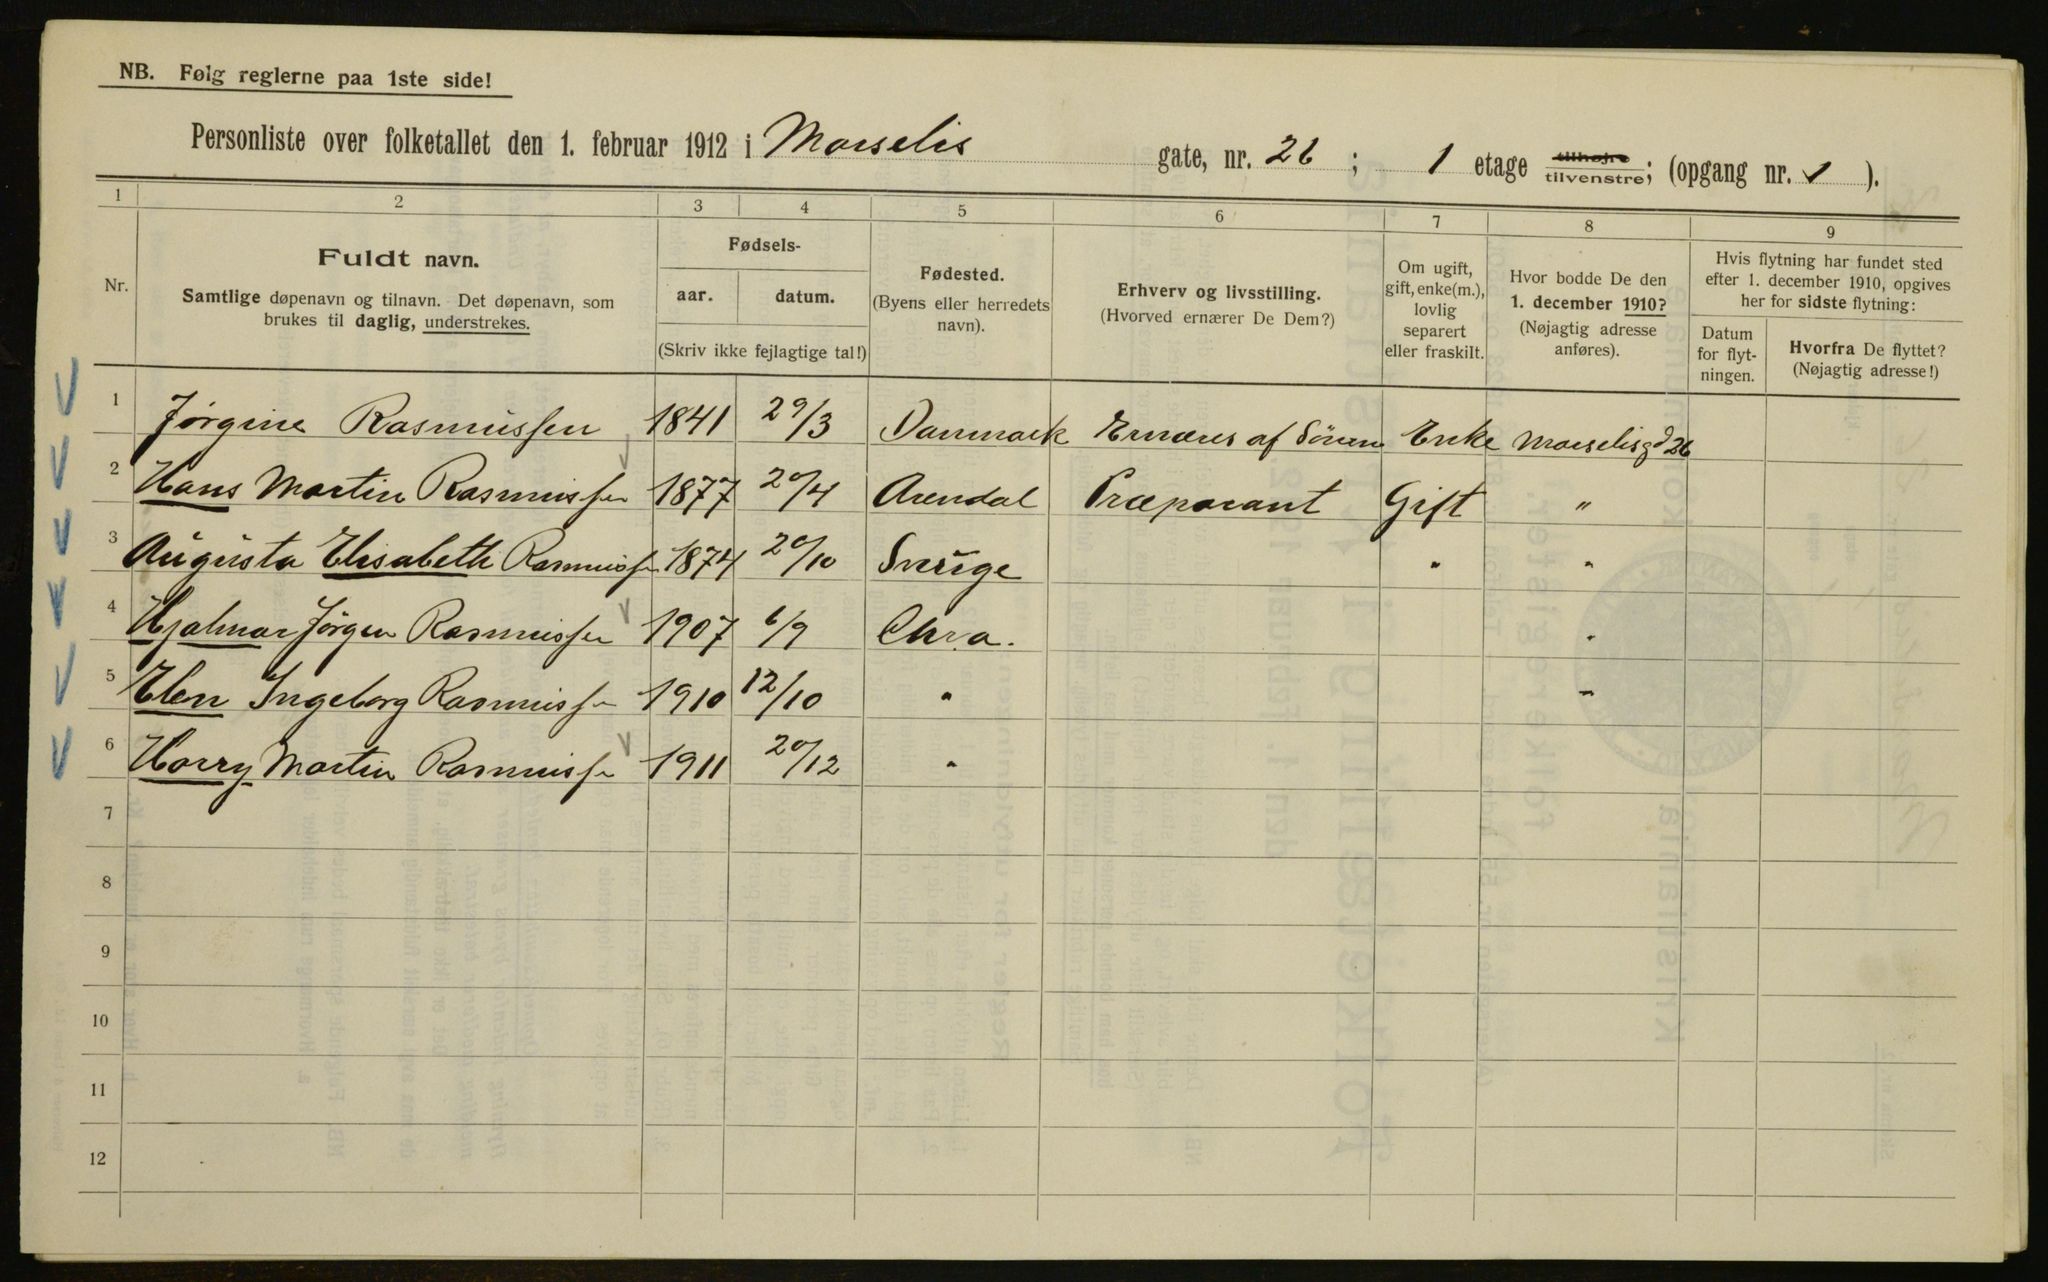 NB. Følg reglerne paa 1ste side!
Personliste over folketallet den 1. februar 1912 i Marselis gate, nr. 26 ; 1 etage tilhøjre tilvenstre; (opgang nr. 1 ).
1 2 3 4 5 6 7 8 9
Nr.
Fuldt navn.
Samtlige døpenavn og tilnavn. Det døpenavn, som
brukes til daglig, understrekes.
Fødsels-
aar. datum.
(Skriv ikke fejlagtige tal!)
Fødested.
(Byens eller herredets
navn).
Erhverv og livsstilling.
(Hvorved ernærer De Dem?)
Om ugift,
gift, enke(m.),
lovlig
separert
eller fraskilt.
Hvor bodde De den
1. december 1910?
(Nøjagtig adresse
anføres).
Hvis flytning har fundet sted
efter 1. december 1910, opgives
her for sidste flytning:
Datum
for flyt-
ningen.
Hvorfra De flyttet?
(Nøjagtig adresse!)
1 Jørgine Rasmussen 1841 29/3 Danmark Ernæres af Sönen Enke Marselisgd 26
2 Hans Martin Rasmussen 1877 20/4 Arendal Præparant Gift "
3 Augusta Elisabeth Rasmussen 1874 20/10 Sverige " "
4 Hjalmar Jörgen Rasmussen 1907 6/9 Chra. "
5 Elen Ingeborg Rasmussen 1910 12/10 " "
6 Harry Martin Rasmussen 1911 20/12 "
7
8
9
10
11
12